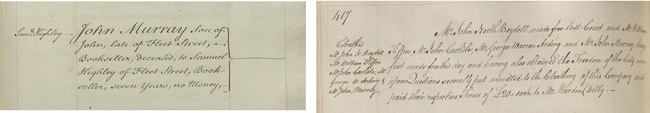 Saml. Highley
John Murray Son of
John, late of Fleet Street,
Bookseller, deceased, to Samuel
Highley of Fleet Street, Book-
seller, seven Years, no Money,
417
Mr. John North Boydell, made free last Court, and Mr. William
Tiffin Mr. John Carlisle, Mr. George Warren and Mr. John Murray being
first made free this day and having also obtained the Freedom of this City were
upon Questions severally put admitted to the Cloathing of this Company and
paid their respective Fines of £20 each to Mr. Warden Dilly.
Cloathing
Mr. John N. Boydell
Mr. William Tiffin
Mr. John Carlisle, Mr.
George W. &
Mr. John Murray